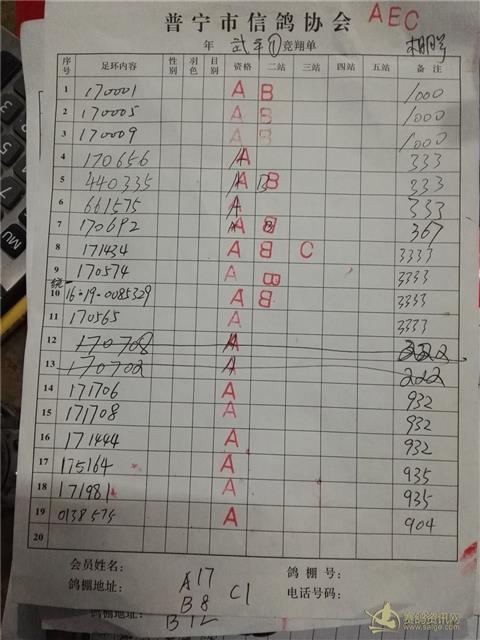 普宁市信鸽协会 AEC
年 武平① 竞翔单
序号 足环内容 性别 羽色 目别 资格 二站 三站 四站 五站 备注
1 170001 A B 1000
2 170005 A B 1000
3 170009 A B 1000
4 170656 A 333
5 440335 A B 333
6 661575 A 333
7 170692 A B 367
8 171434 A B C 3333
9 170574 A B 3333
10 16-19-0085329 A B 3333
11 170565 A 3333
12 170708 A 222
13 170702 A 222
14 171706 A 932
15 171708 A 932
16 171444 A 932
17 175164 A 935
18 171981 A 935
19 0138575 A 904
20
会员姓名: 鸽棚号:
鸽棚地址: 电话号码:
A17
B8 C1
鸽棚地址: B12
赛鸽资讯网
www.saige.com